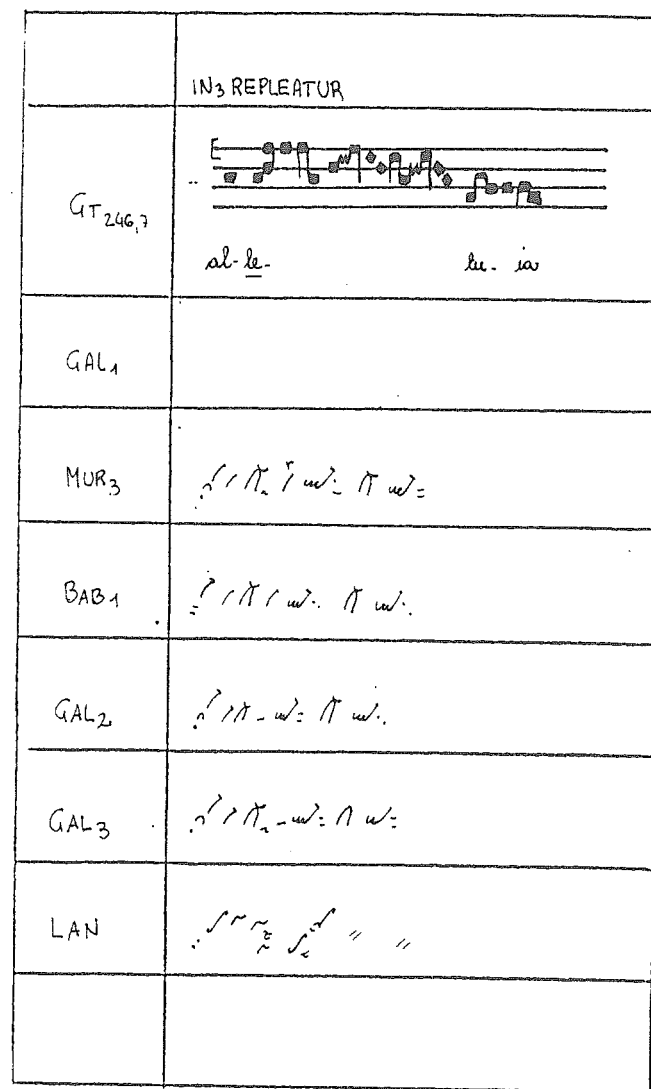 IN3 REPLEATUR
GT246,7
al-le- lu- ia
GAL1
MUR3
BAB1
GAL2
GAL3
LAN